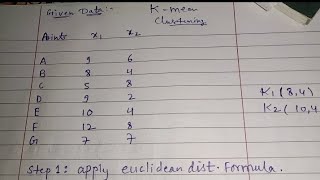 Given Data:- K-mean
Clustering
Points x₁ x₂
A 9 6
B 8 4
C 5 8
D 9 2
E 10 4
F 12 8
G 7 7
K1 (8,4)
K2 (10,4
Step 1: apply euclidean dist. Formula.